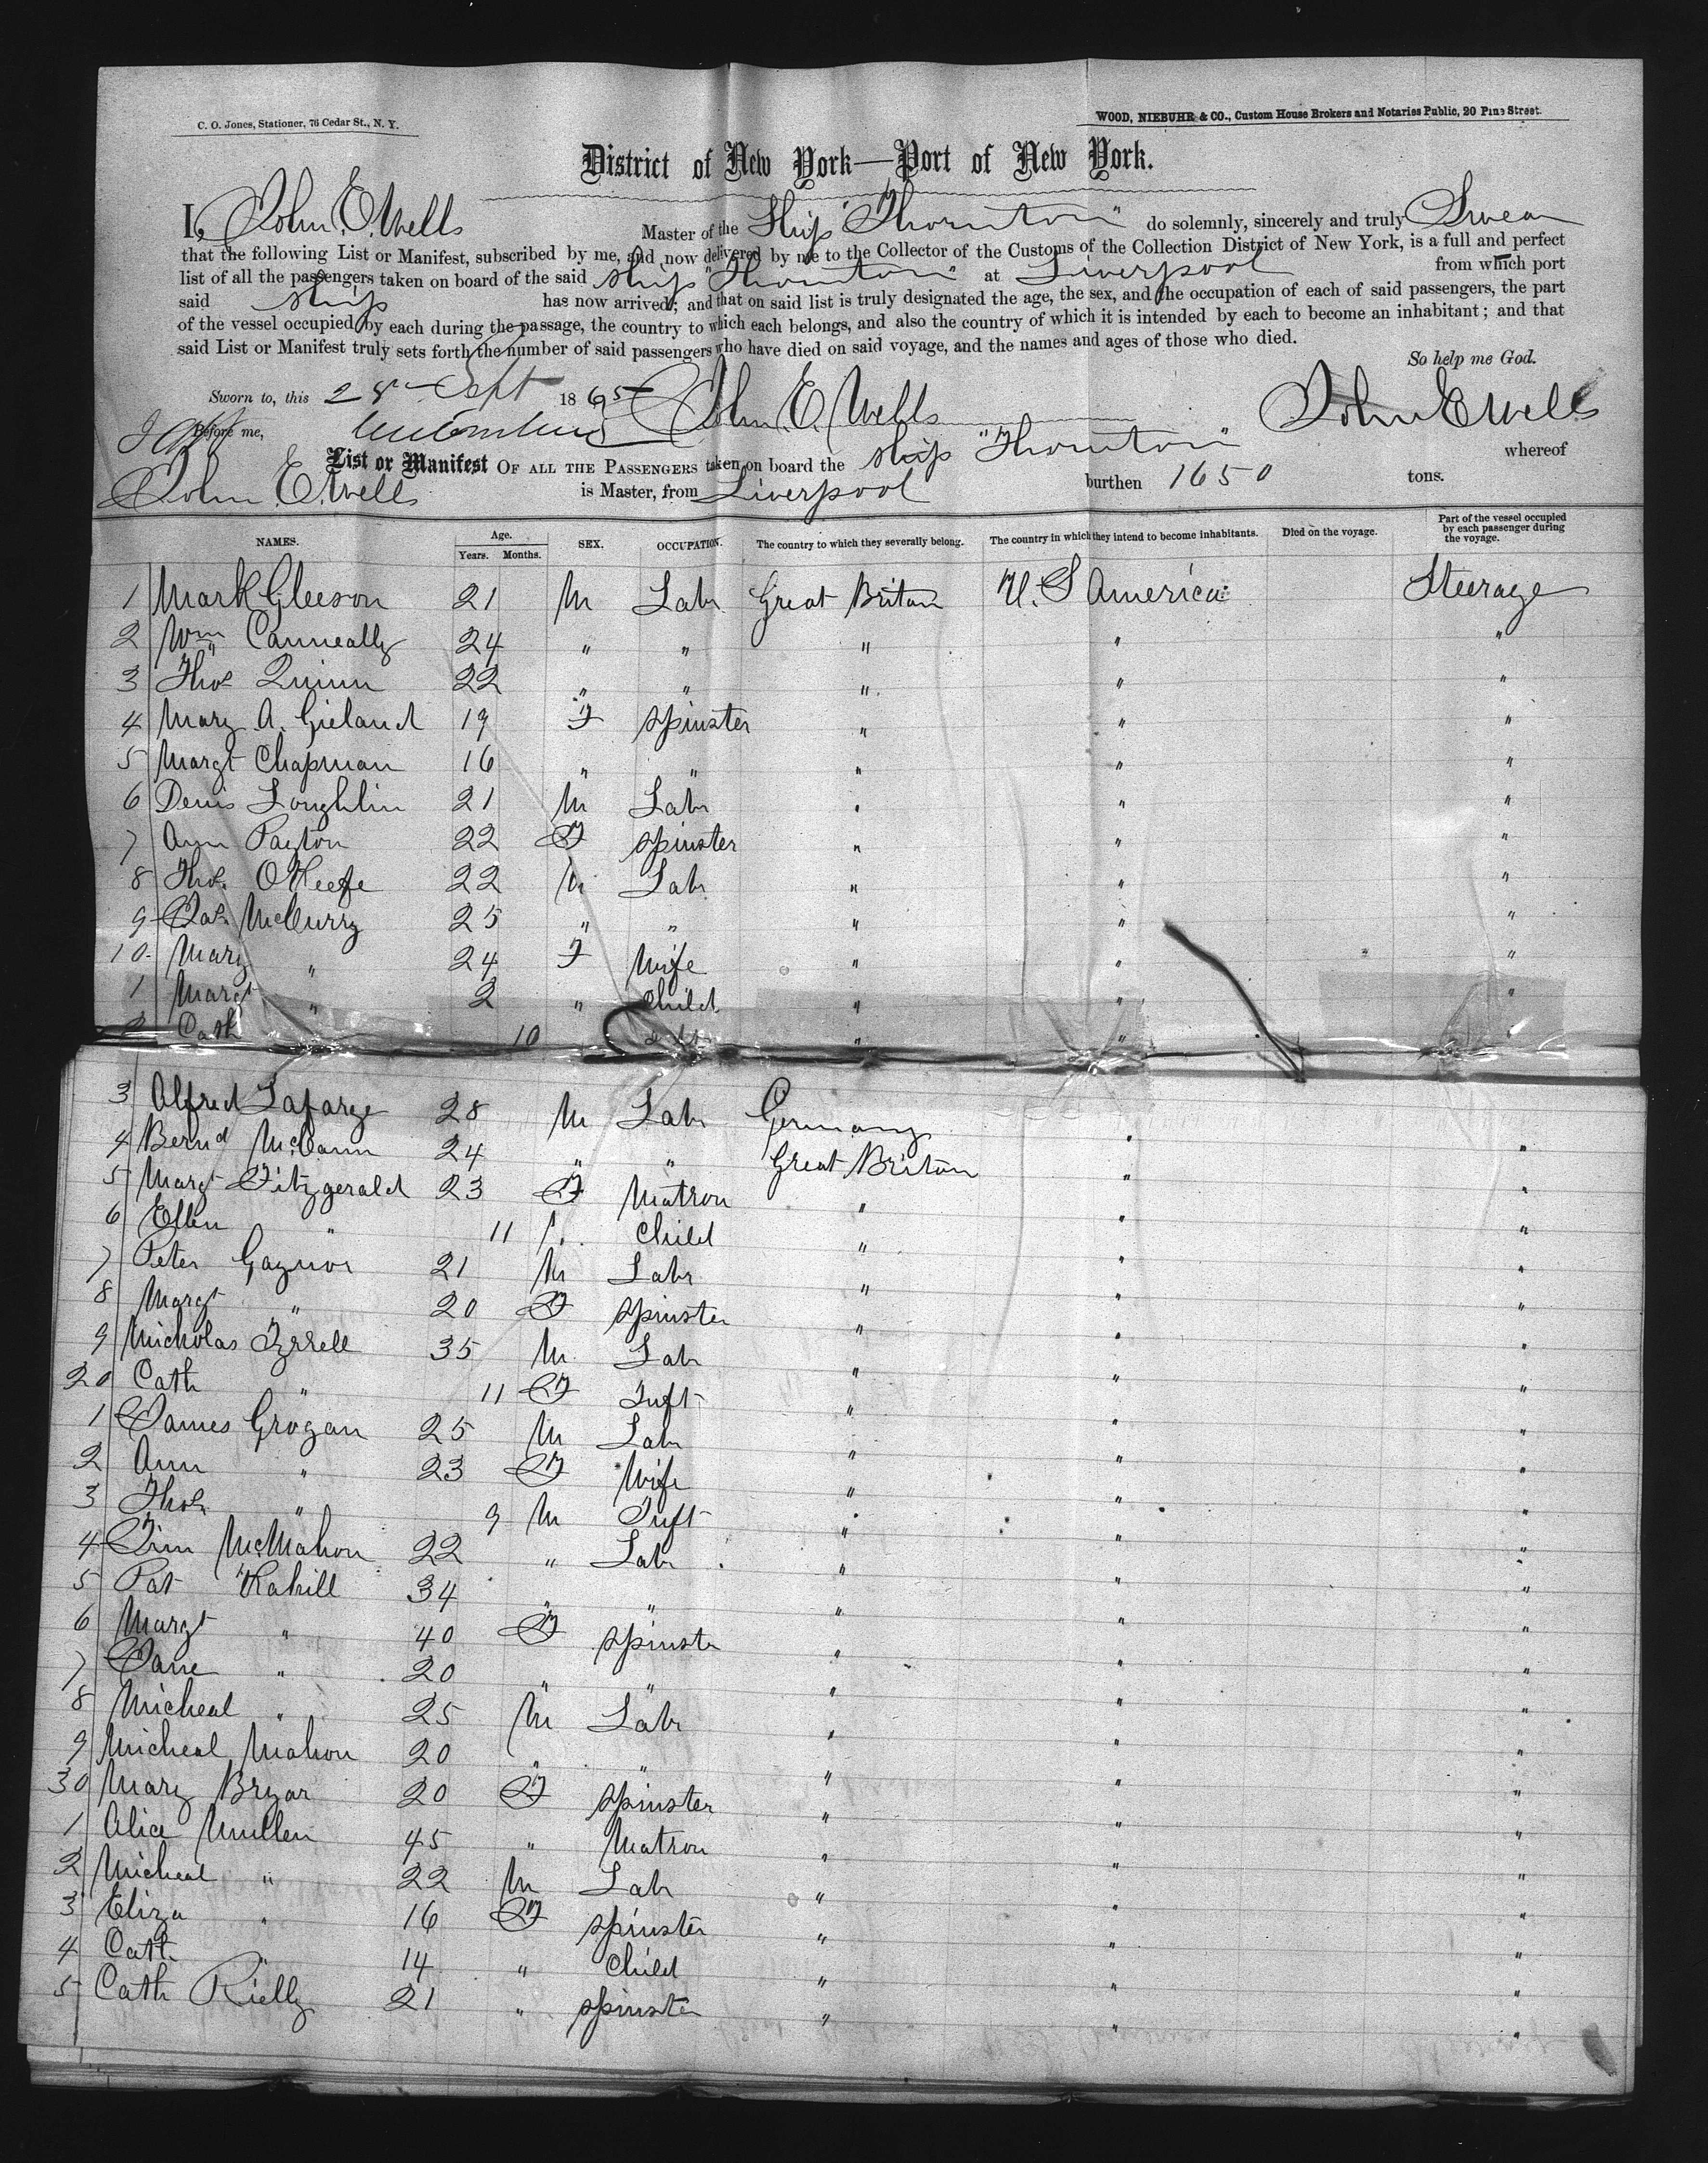 C. O. Jones, Stationer, 76 Cedar St., N. Y.
WOOD, NIEBUHR & CO., Custom House Brokers and Notaries Public, 20 Pine Street.
District of New York—Port of New York.
I, John E. Wells Master of the Ship "Thornton" do solemnly, sincerely and truly Swear
that the following List or Manifest, subscribed by me, and now delivered by me to the Collector of the Customs of the Collection District of New York, is a full and perfect
list of all the passengers taken on board of the said ship "Thornton" at Liverpool from which port
said ship has now arrived; and that on said list is truly designated the age, the sex, and the occupation of each of said passengers, the part
of the vessel occupied by each during the passage, the country to which each belongs, and also the country of which it is intended by each to become an inhabitant; and that
said List or Manifest truly sets forth the number of said passengers who have died on said voyage, and the names and ages of those who died.
So help me God.
Sworn to, this 28 Sept 1865 John E. Wells John E Wells
Before me,
List or Manifest OF ALL THE PASSENGERS taken on board the ship "Thornton" whereof
John E. Wells is Master, from Liverpool burthen 1650 tons.
NAMES. Age. Years. Months. SEX. OCCUPATION. The country to which they severally belong. The country in which they intend to become inhabitants. Died on the voyage. Part of the vessel occupied by each passenger during the voyage.
1 Mark Gleeson 21 M Labr Great Britan U. S America Steerage
2 Wm Canneally 24 " " " " "
3 Thos Quinn 22 " " " " "
4 Mary A. Gieland 19 F Spinster " " "
5 Margt Chapman 16 " " " " "
6 Denis Loughlin 21 M Labr " " "
7 Ann Payton 22 F Spinster " " "
8 Thos. O'Keefe 22 M Labr " " "
9 Jas. McCurry 25 " " " " "
10. Mary " 24 F Wife " " "
1 Margt " 2 " Child " " "
2 Cath 10 " "
3 Alfred Lafarge 28 M Labr Germany " "
4 Bernd McCann 24 " " Great Britan " "
5 Margt Fitzgerald 23 F Matron " " "
6 Ellen " 11 Child " " "
7 Peter Gaynor 21 M Labr " " "
8 Margt " 20 F Spinster " " "
9 Nicholas Tyrrell 35 M Labr " " "
20 Cath " 11 F Inft " " "
1 James Grogan 25 M Labr " " "
2 Ann " 23 F Wife " " "
3 Thos. " 9 M Inft " " "
4 Jim McMahon 22 " Labr " " "
5 Pat Kahill 34 " " " " "
6 Margt " 40 F Spinster " " "
7 Jane " 20 " " " " "
8 Micheal " 25 M Labr " " "
9 Micheal Mahon 20 " " " " "
30 Mary Bryar 20 F Spinster " " "
1 Alice Mullen 45 " Matron " " "
2 Micheal " 22 M Labr " " "
3 Eliza " 16 F Spinster " " "
4 Cath. " 14 " Child " " "
5 Cath Rielly 21 " Spinster " " "